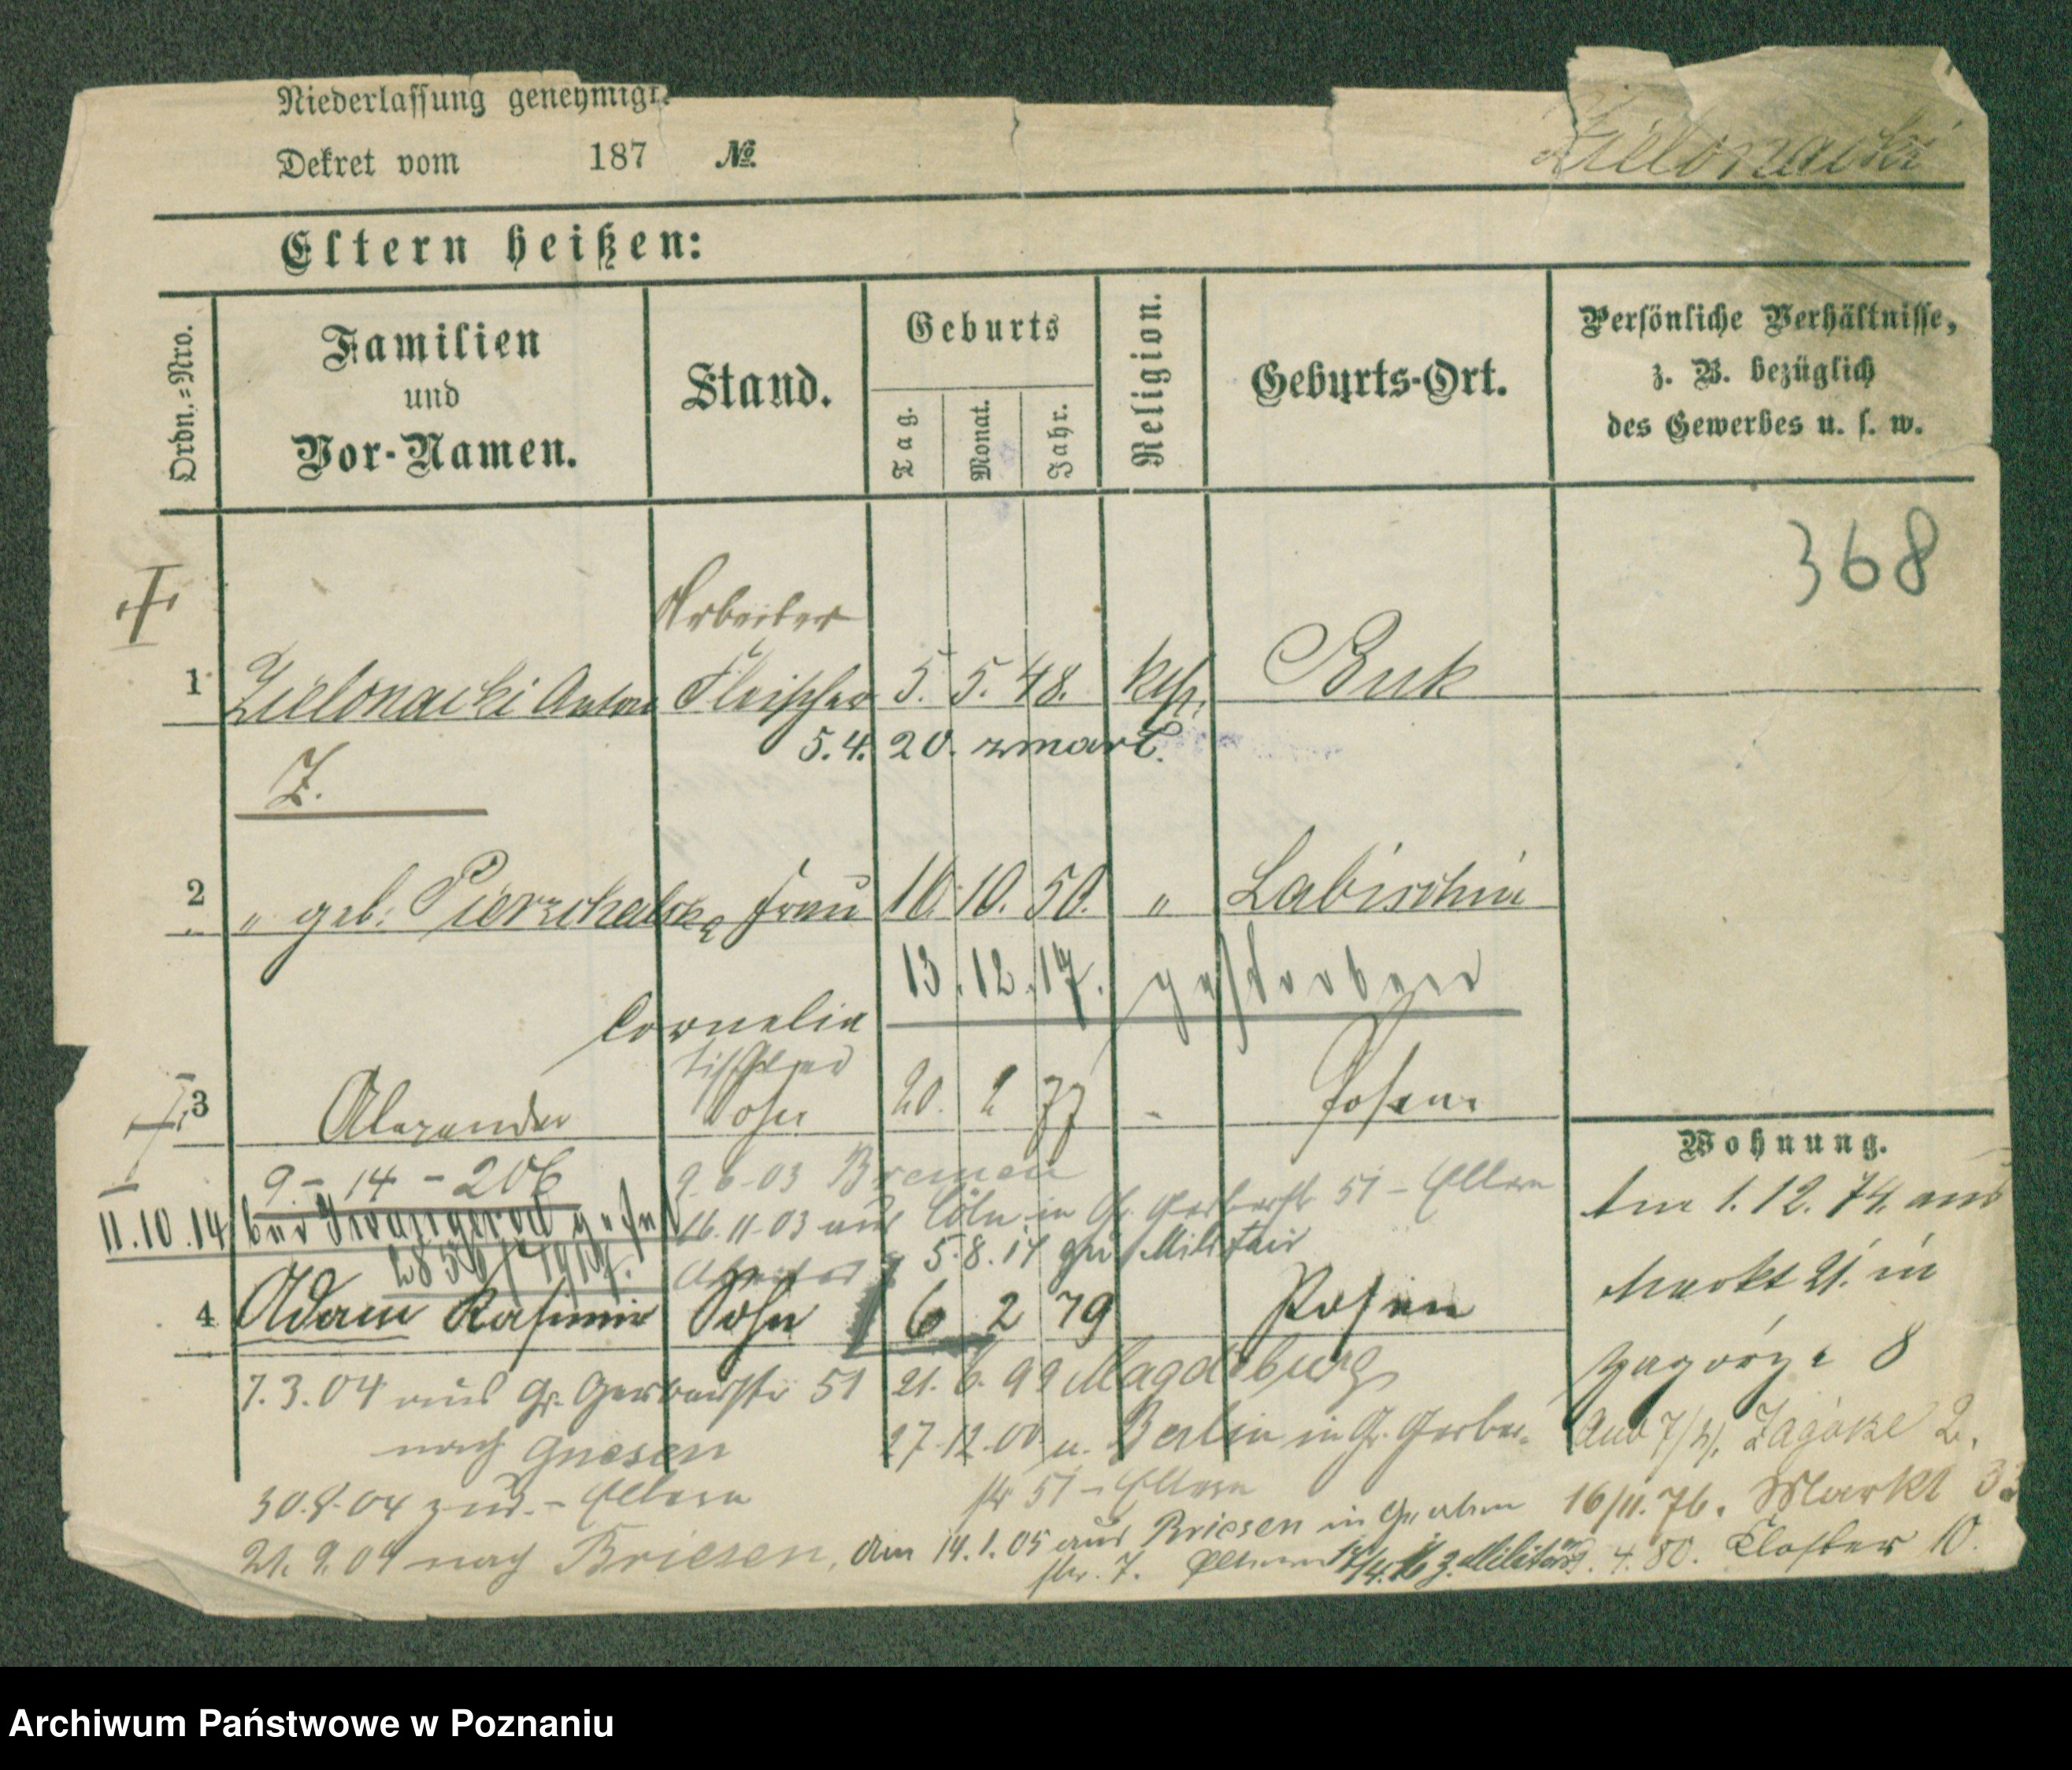 Niederlassung genehmigt.
Dekret vom 187 №
Zielonacki
Eltern heißen:
Ordn.=Nro.
Familien
und
Vor-Namen.
Stand.
Geburts
Tag.
Monat.
Jahr.
Religion.
Geburts-Ort.
Persönliche Verhältnisse,
z. B. bezüglich
des Gewerbes u. s. w.
368
Arbeiter
1 Zielonacki Anton Fleischer 5. 5. 48. kth. Buk
5.4.20. zmarł.
Z.
2 " geb. Pierzchalska Frau 10. 10. 50. " Labischin
13.12.17. gestorben
Cornelia
Tischler
3 Alexander Sohn 20. 2 77 - Posen
9 - 14 - 206 9.6.03 Bremen
16.11.03 aus Cöln in Gr. Gerberstr 51 - Eltern
11.10.14 bei Iwangorod gefal
5.8.14 zum Militair
4 Adam Kasimir Sohn 6 2 79 Posen
7.3.04 aus Gr. Gerberstr 51
nach Gnesen
21.6.99 Magdeburg
27.12.00 a. Berlin in Gr. Gerber-
str 51 - Eltern
30.8.04 zur. - Eltern
21.9.04 nach Briesen, am 14.1.05 aus Briesen in Graben
str. 7. Eltern z. Militär
Wohnung.
Am 1.12.74. aus
Markt 21. in
Zagórze 8
Zagórze 2.
16/11.76. Markt
4.80. Kloster 10.
Archiwum Państwowe w Poznaniu